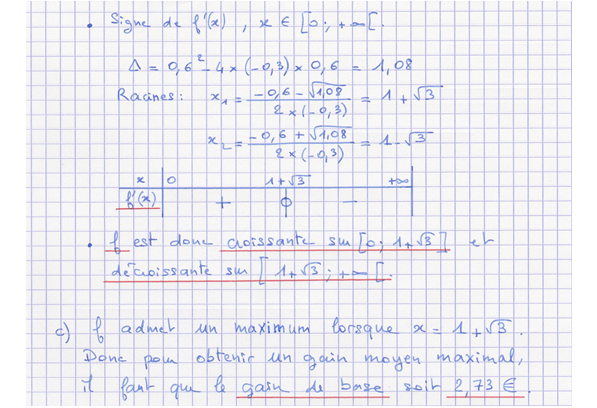 • Signe de f'(x), x ∈ [0 ; +∞[.
Δ = 0,6² - 4 × (-0,3) × 0,6 = 1,08
Racines : x₁ = (-0,6 - √1,08) / (2 × (-0,3)) = 1 + √3
x₂ = (-0,6 + √1,08) / (2 × (-0,3)) = 1 - √3
x | 0 1+√3 +∞
f'(x) | + 0 -
• f est donc croissante sur [0 ; 1+√3] et
décroissante sur [1+√3 ; +∞[.
c) f admet un maximum lorsque x = 1 + √3.
Donc pour obtenir un gain moyen maximal,
il faut que le gain de base soit 2,73 €.